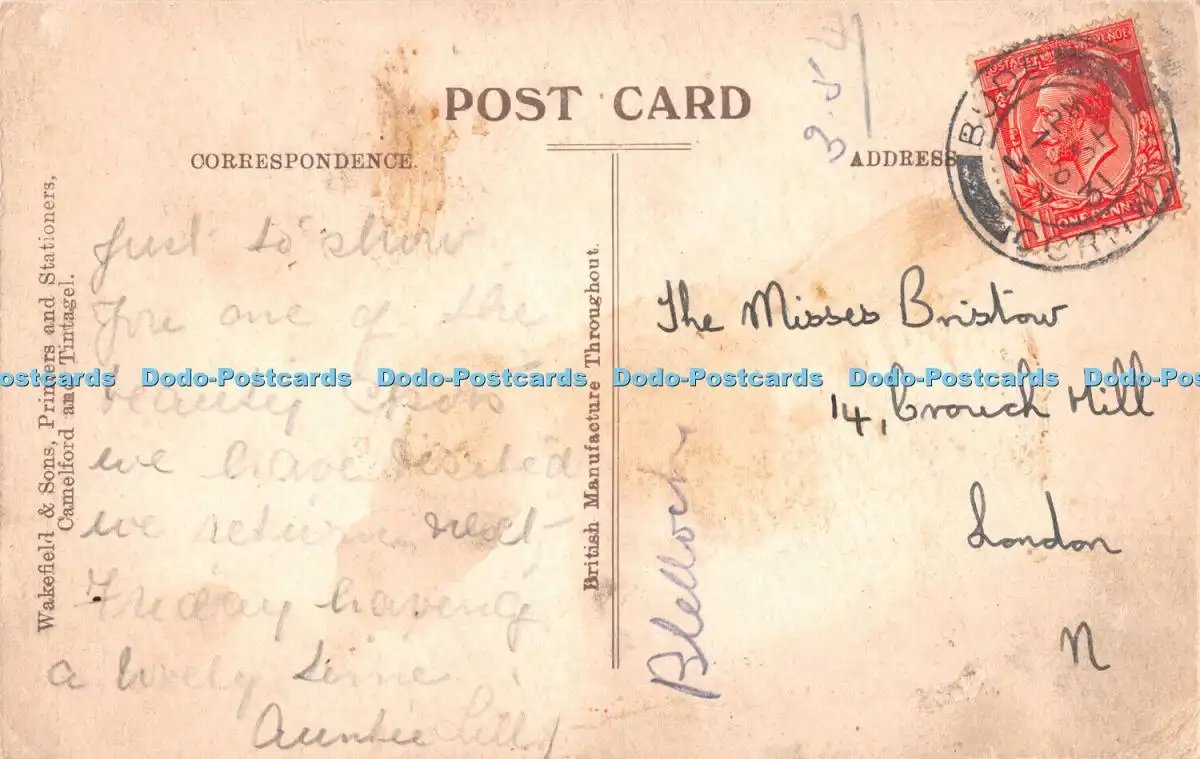 POST CARD
CORRESPONDENCE.
ADDRESS
Wakefield & Sons, Printers and Stationers,
Camelford and Tintagel.
British Manufacture Throughout.
Just to show
You one of the
beauty spots
we have visited
we return next
Friday having
a lovely time.
Auntie Lilly
3.54
Blelloch
POSTAGE REVENUE
ONE PENNY
BUDE
CORNWALL
31
The Misses Bristow
14, Crouch Hill
London
N
Dodo-Postcards Dodo-Postcards Dodo-Postcards Dodo-Postcards Dodo-Postcards